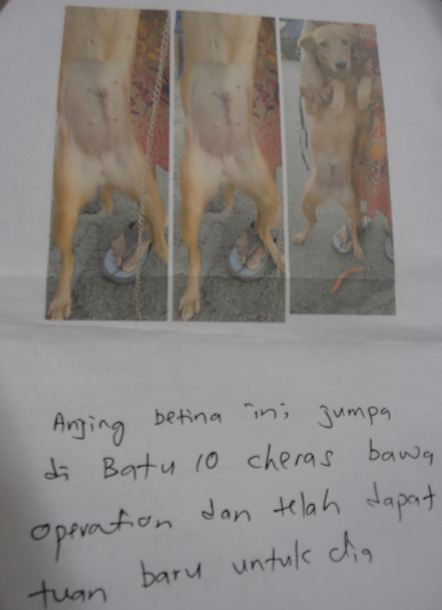 Anjing betina ini jumpa
di Batu 10 cheras bawa
operation dan telah dapat
tuan baru untuk dia